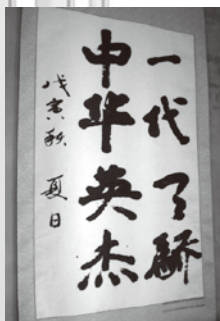 一代天骄
中华英杰
戊寅秋 夏日